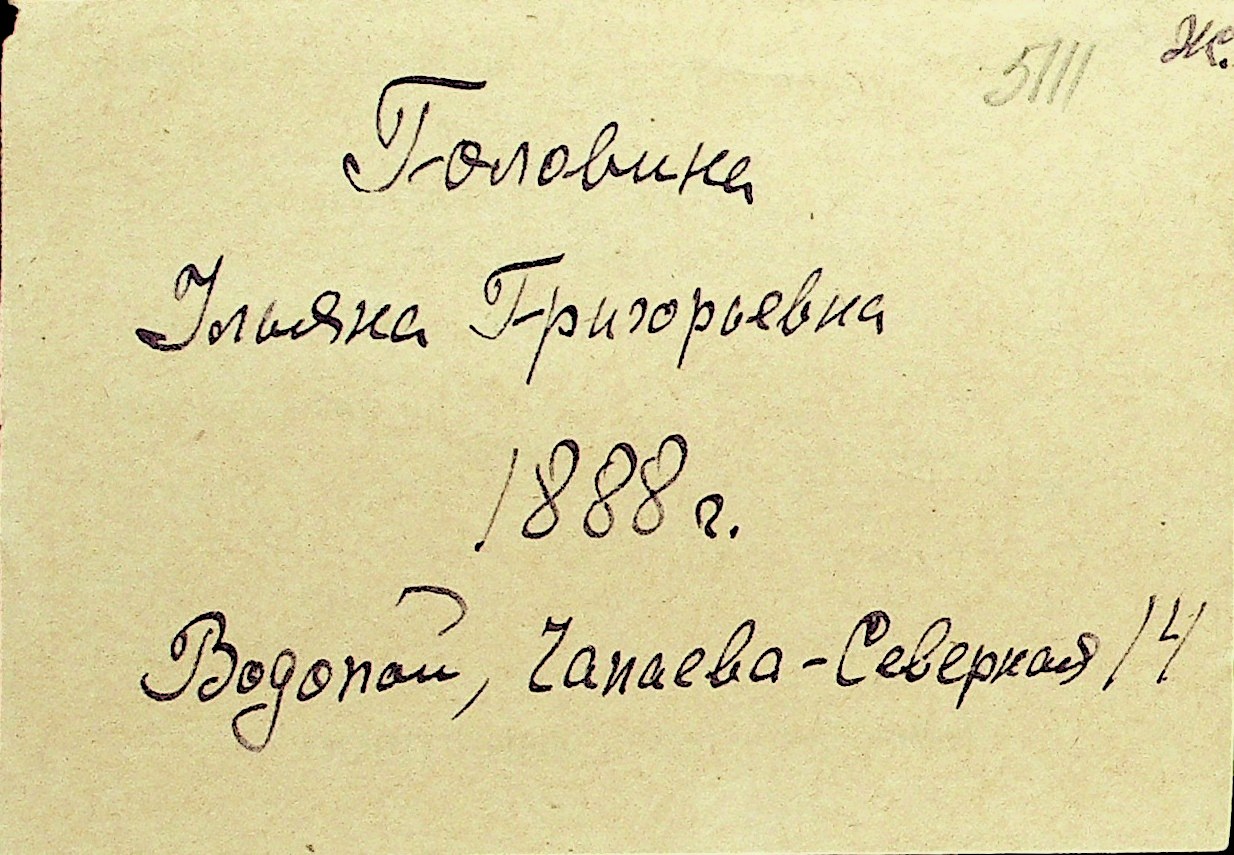 Ж.
5111
Головина
Ульяна Григорьевна
1888 г.
Водопой, Чапаева-Северная 14